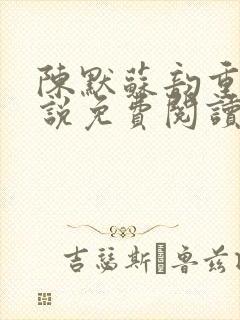 陳默蘇韵重
說免費閱讀
吉瑟斯·魯茲